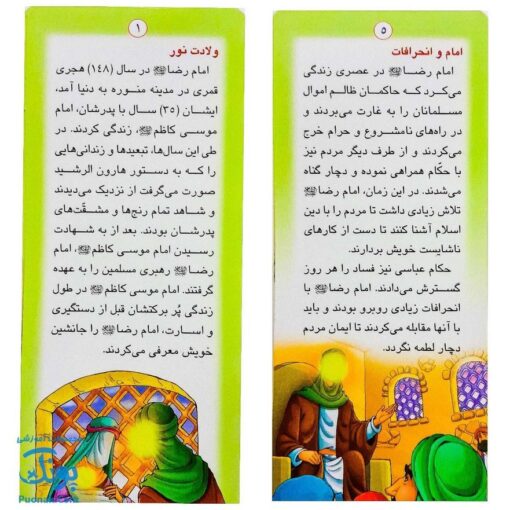 ۱
ولادت نور
امام رضا ﷺ در سال (۱۴۸) هجری
قمری در مدینه منوره به دنیا آمد،
ایشان (۳۵) سال با پدرشان، امام
موسی کاظم ﷺ، زندگی کردند. در
طی این سال‌ها، تبعیدها و زندانی‌هایی
را که به دستور هارون الرشید
صورت می‌گرفت از نزدیک می‌دیدند
و شاهد تمام رنج‌ها و مشقّت‌های
پدرشان بودند. بعد از به شهادت
رسیدن امام موسی کاظم ﷺ، امام
رضا ﷺ رهبری مسلمین را به عهده
گرفتند. امام موسی کاظم ﷺ در طول
زندگی پُر برکتشان قبل از دستگیری
و اسارت، امام رضا ﷺ را جانشین
خویش معرفی می‌کردند.
۵
امام و انحرافات
امام رضا ﷺ در عصری زندگی
می‌کرد که حاکمان ظالم اموال
مسلمانان را به غارت می‌بردند و
در راه‌های نامشروع و حرام خرج
می‌کردند و از طرف دیگر مردم نیز
با حکّام همراهی نموده و دچار گناه
می‌شدند. در این زمان، امام رضا ﷺ
تلاش زیادی داشت تا مردم را با دین
اسلام آشنا کنند تا دست از کارهای
ناشایست خویش بردارند.
حکام عباسی نیز فساد را هر روز
گسترش می‌دادند. امام رضا ﷺ با
انحرافات زیادی روبرو بودند و باید
با آنها مقابله می‌کردند تا ایمان مردم
دچار لطمه نگردد.